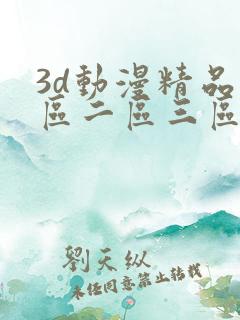 3d動漫精品
區二區三區
劉天纵
未经同意禁止转载